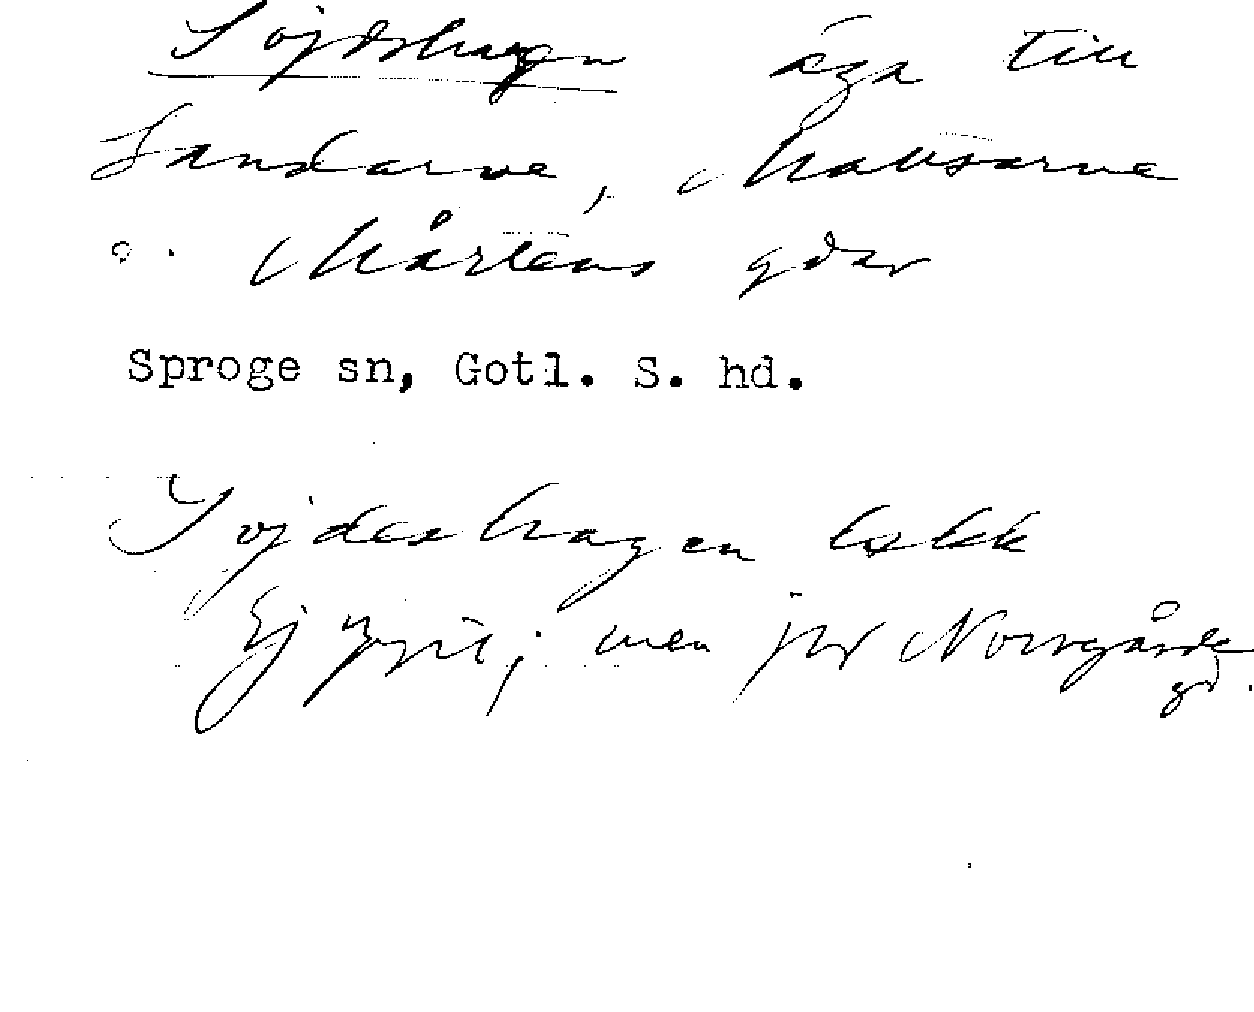 Söjdshagn äga till
Sandarve, Mattsarve
o. Mårtens gdar
Sproge sn, Gotl. S. hd.
Söjdeshagen Eskk
Ej ; men jfr Norrgårde
gd.